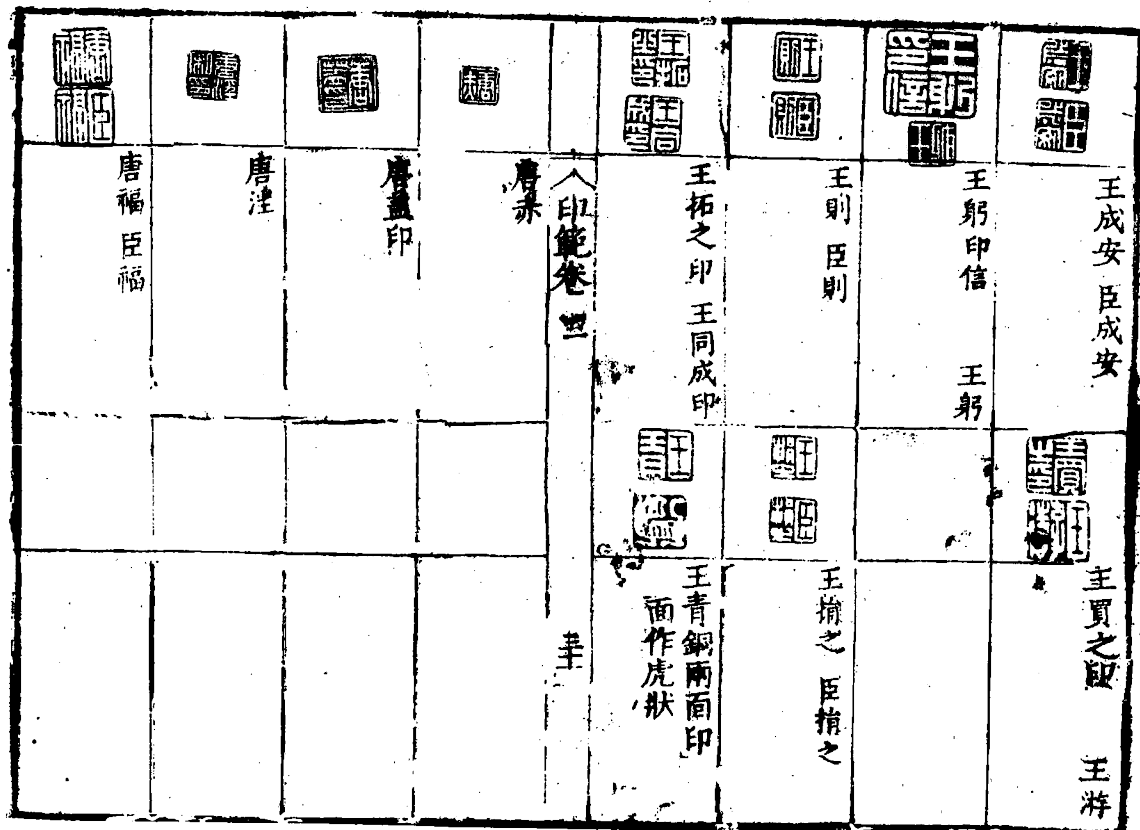 王成安　臣成安
王買之印　王游
王躬印信　王躬
王則　臣則
王揃之　臣揃之
王拓之印　王同成印
王青銅兩面印
面作虎狀
印範卷四
唐耒
唐蓋印
唐湦
唐福　臣福